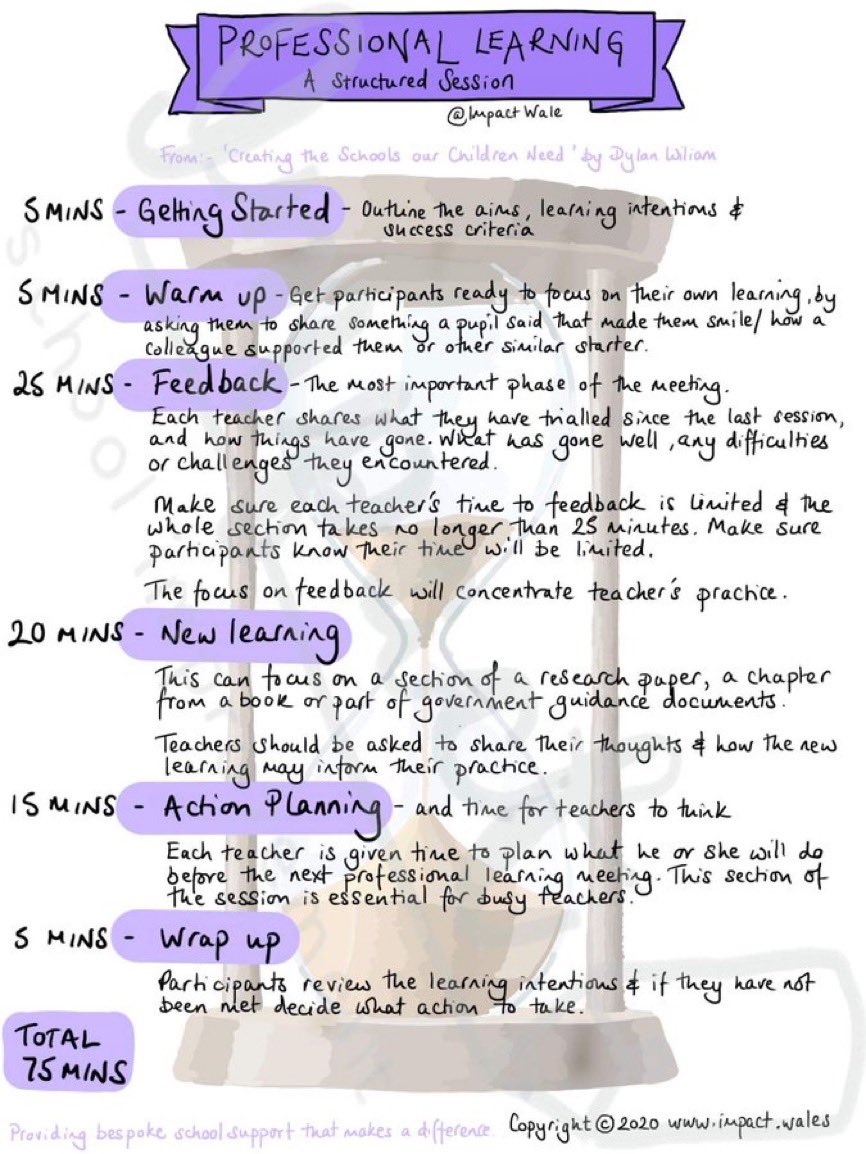 PROFESSIONAL LEARNING
A Structured Session
@Impact Wale
From:- 'Creating the Schools our Children Need' by Dylan Wiliam
5 MINS - Getting Started - Outline the aims, learning intentions &
success criteria
5 MINS - Warm up - Get participants ready to focus on their own learning, by
asking them to share something a pupil said that made them smile/ how a
colleague supported them or other similar starter.
25 MINS - Feedback - The most important phase of the meeting.
Each teacher shares what they have trialled since the last session,
and how things have gone. What has gone well, any difficulties
or challenges they encountered.
Make sure each teacher's time to feedback is limited & the
whole section takes no longer than 25 minutes. Make sure
participants know their time will be limited.
The focus on feedback will concentrate teacher's practice.
20 MINS - New learning
This can focus on a section of a research paper, a chapter
from a book or part of government guidance documents.
Teachers should be asked to share their thoughts & how the new
learning may inform their practice.
15 MINS - Action Planning - and time for teachers to think
Each teacher is given time to plan what he or she will do
before the next professional learning meeting. This section of
the session is essential for busy teachers.
5 MINS - Wrap up
Participants review the learning intentions & if they have not
been met decide what action to take.
TOTAL
75 MINS
Providing bespoke school support that makes a difference. Copyright © 2020 www.impact.wales